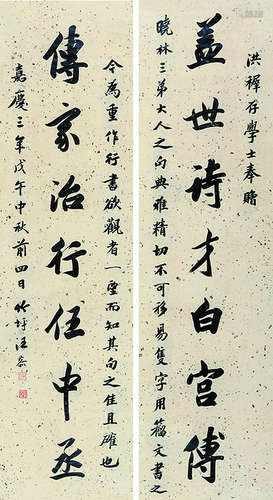 洪穉存學士奉贈
盖世詩才白宮傅
曉林三弟大人之句典雅精切不可移易隻字用籀文書之
今為重作行書欲觀者一望而知其句之佳且確也
傳家治行任中丞
嘉慶三年戊午中秋前四日竹坪汪恭